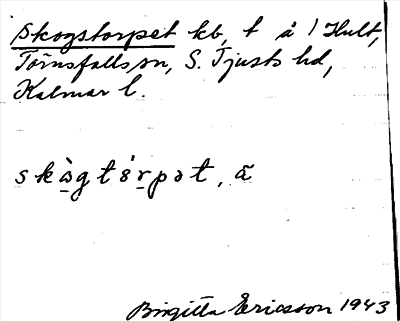 Skogstorpet kb, t å 1 Hult,
Törnsfalls sn, S. Tjusts hd,
Kalmar l.
skὰ̱gtɵ́r̠pət, ā
Birgitta Ericsson 1943